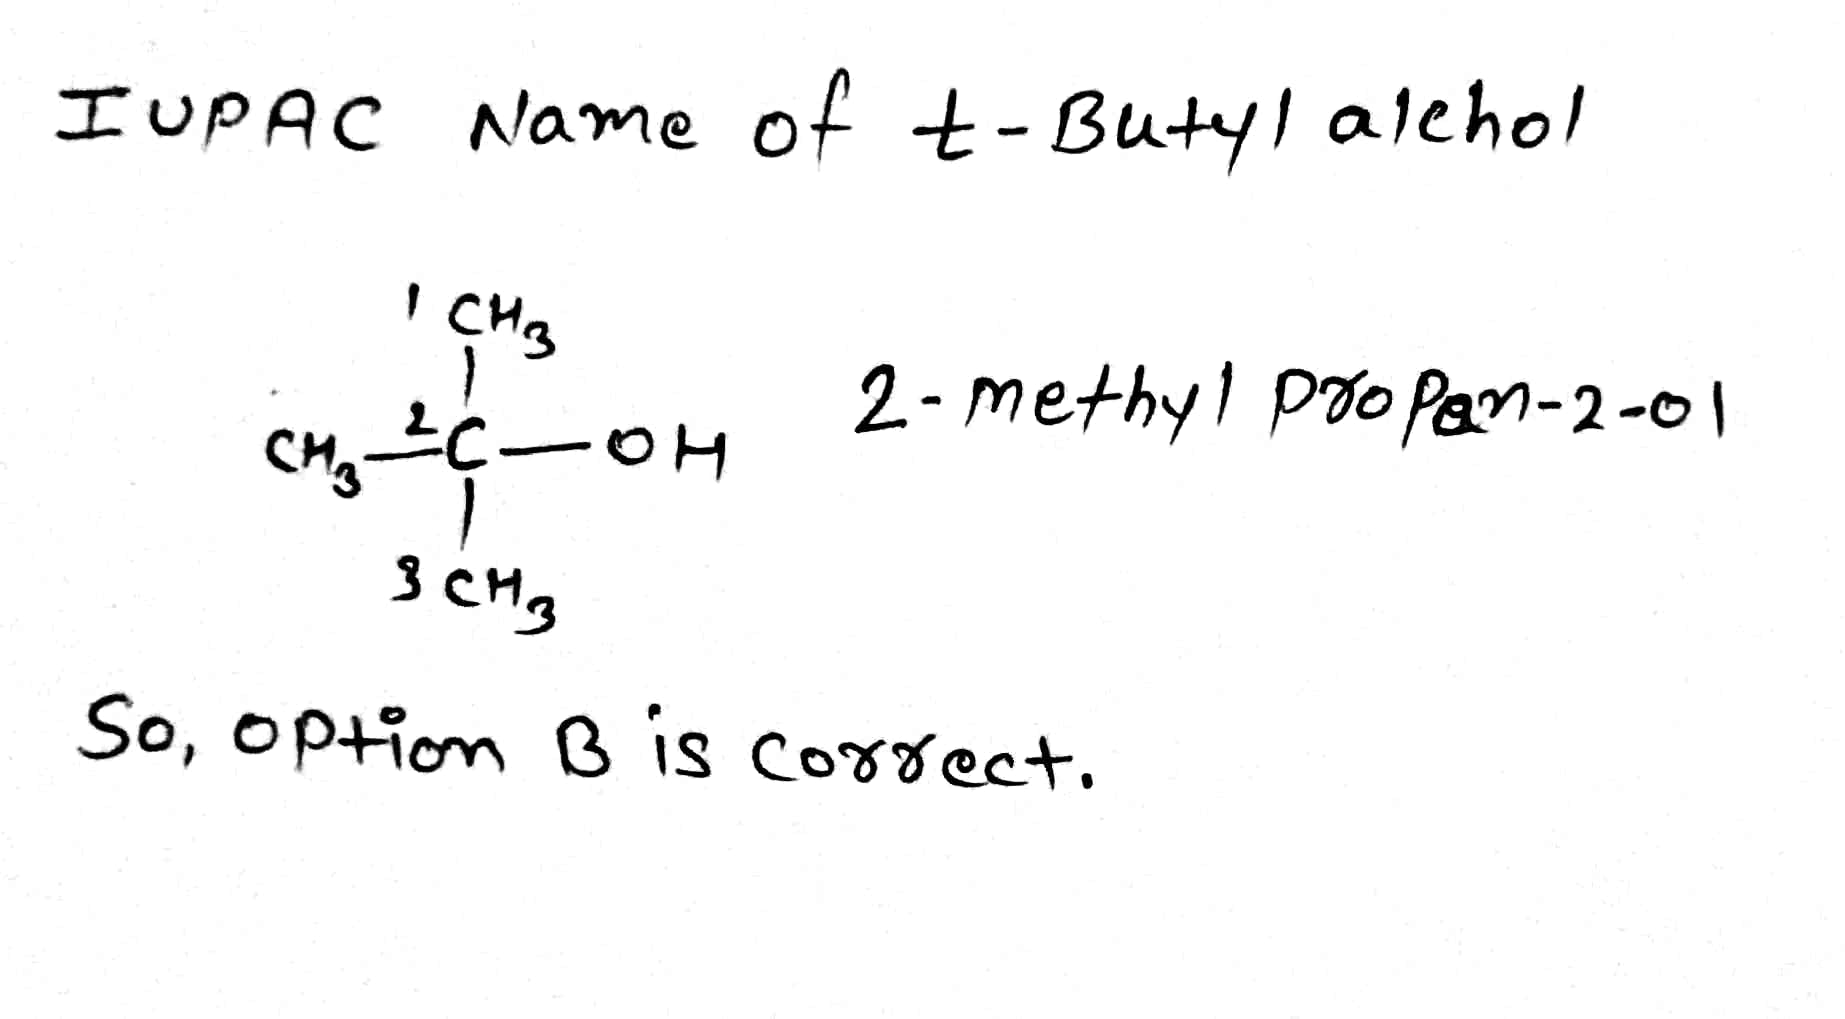 IUPAC Name of t-Butyl alchol
1 CH3
CH3 2C OH
2-methyl propan-2-ol
3 CH3
So, option B is correct.